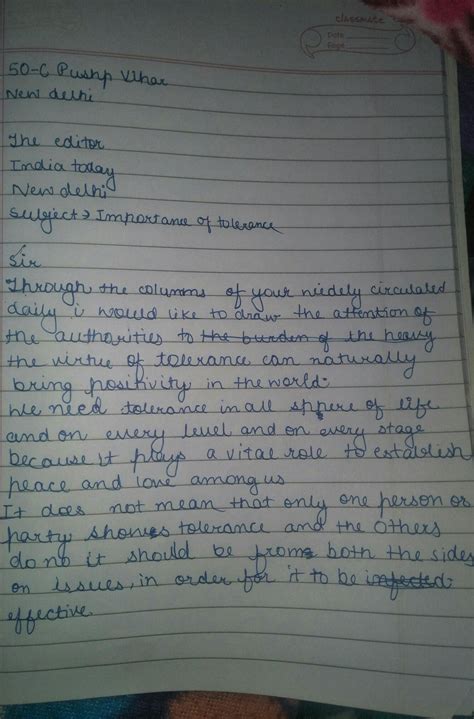 classmate
Date
Page
50-C Pushp Vihar
New delhi
The editor
India today
New delhi
Subject → Importance of tolerance
Sir
Through the columns of your widely circulated
daily i would like to draw the attention of
the authorities to the burden of the heavy
the virtue of tolerance can naturally
bring positivity in the world.
We need tolerance in all sphere of life
and on every level and on every stage
because it plays a vital role to establish
peace and love among us
It does not mean that only one person or
party shows tolerance and the others
do no it should be from both the sides
on issues, in order for it to be infected.
effective